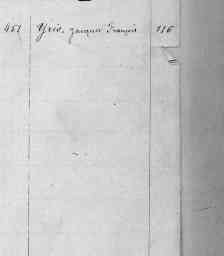 451 Yvie, Jacques François 116